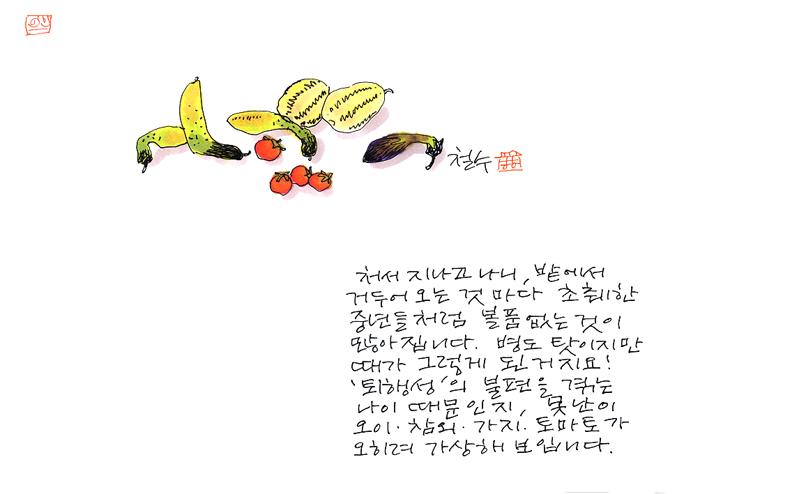 철수
처서 지나고 나니, 밭에서
거두어 오는 것 마다 초췌한
중년들처럼 볼품없는 것이
많아집니다. 병도 탓이지만
때가 그렇게 된거지요!
'퇴행성'의 불편을 겪는
나이 때문인지, 못난이
오이·참외·가지·토마토가
오히려 가상해 보입니다.